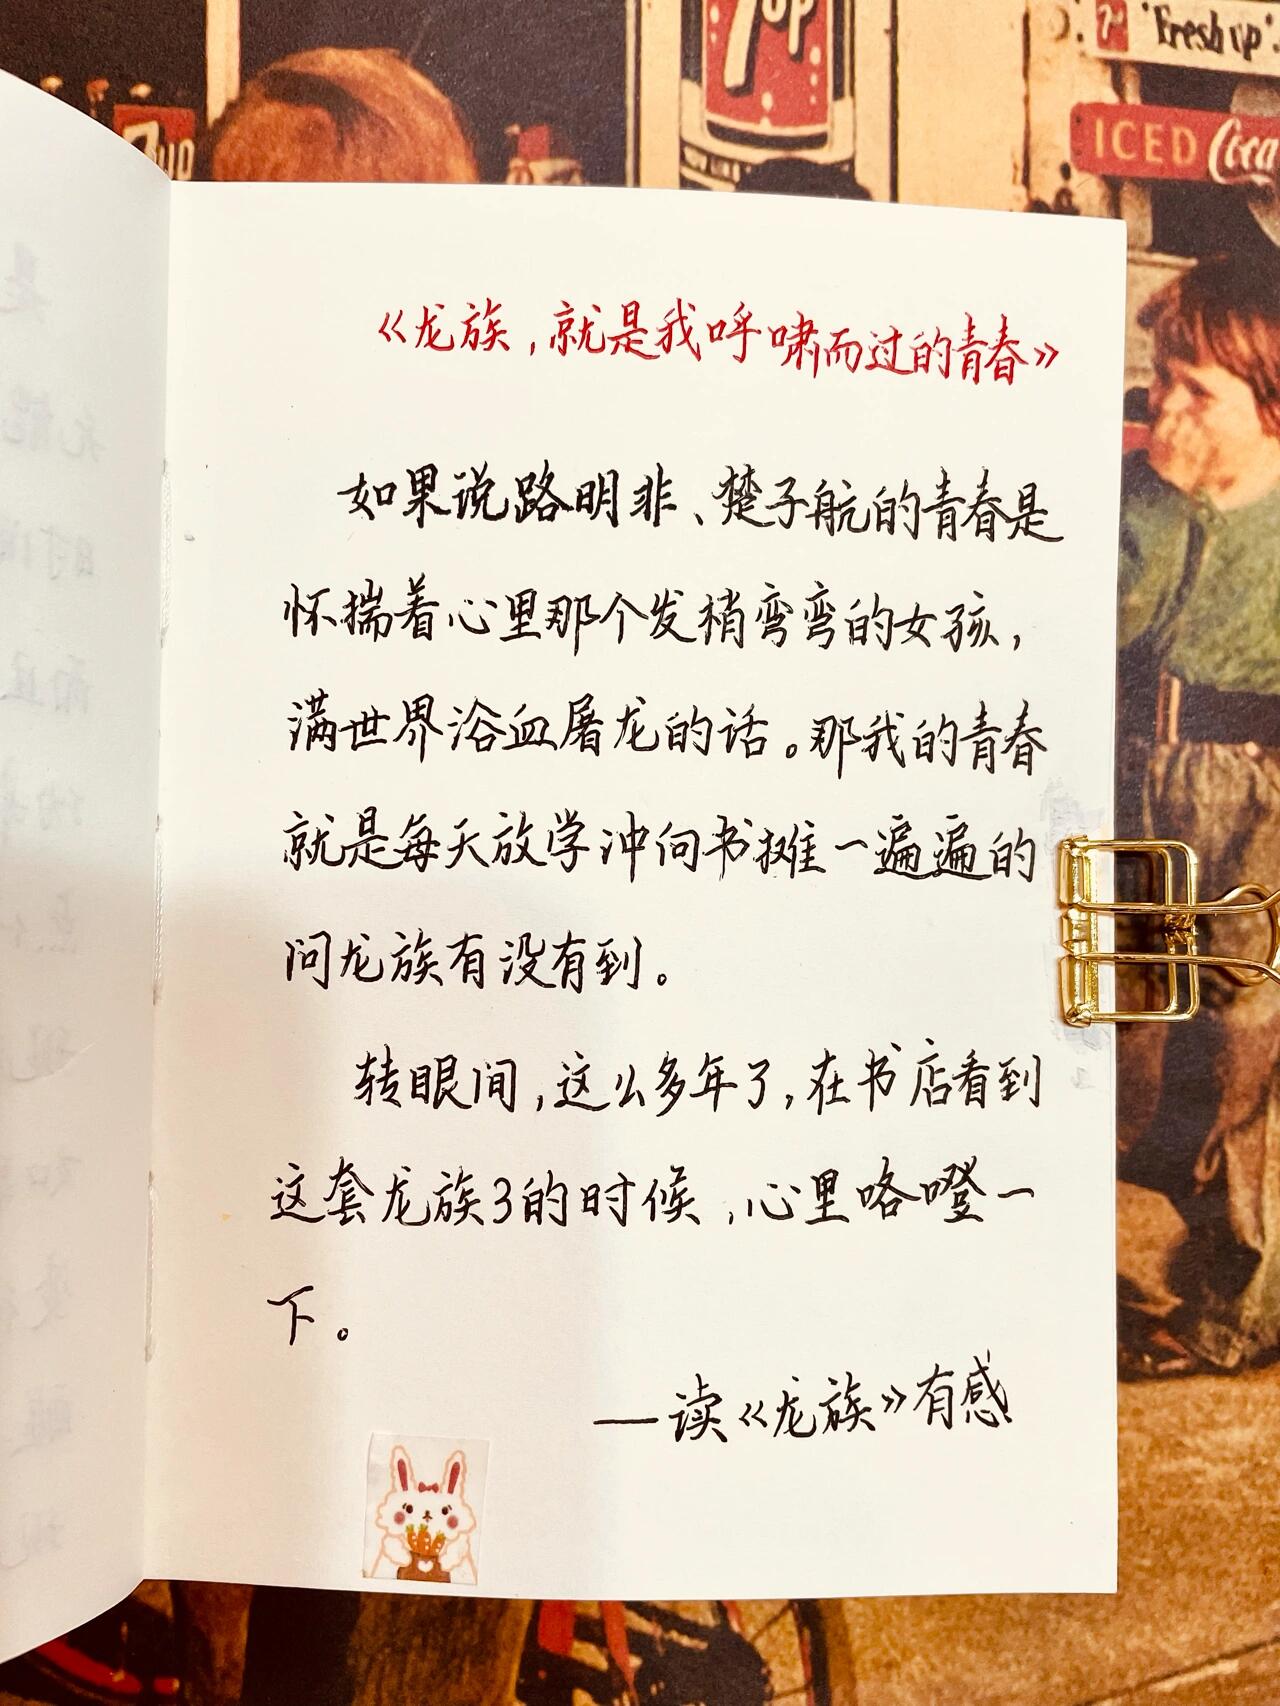 7up
7up
"Fresh up"
ICED Coca
《龙族,就是我呼啸而过的青春》
如果说路明非、楚子航的青春是
怀揣着心里那个发梢弯弯的女孩,
满世界浴血屠龙的话。那我的青春
就是每天放学冲向书摊一遍遍的
问龙族有没有到。
转眼间,这么多年了,在书店看到
这套龙族3的时候,心里咯噔一
下。
—读《龙族》有感